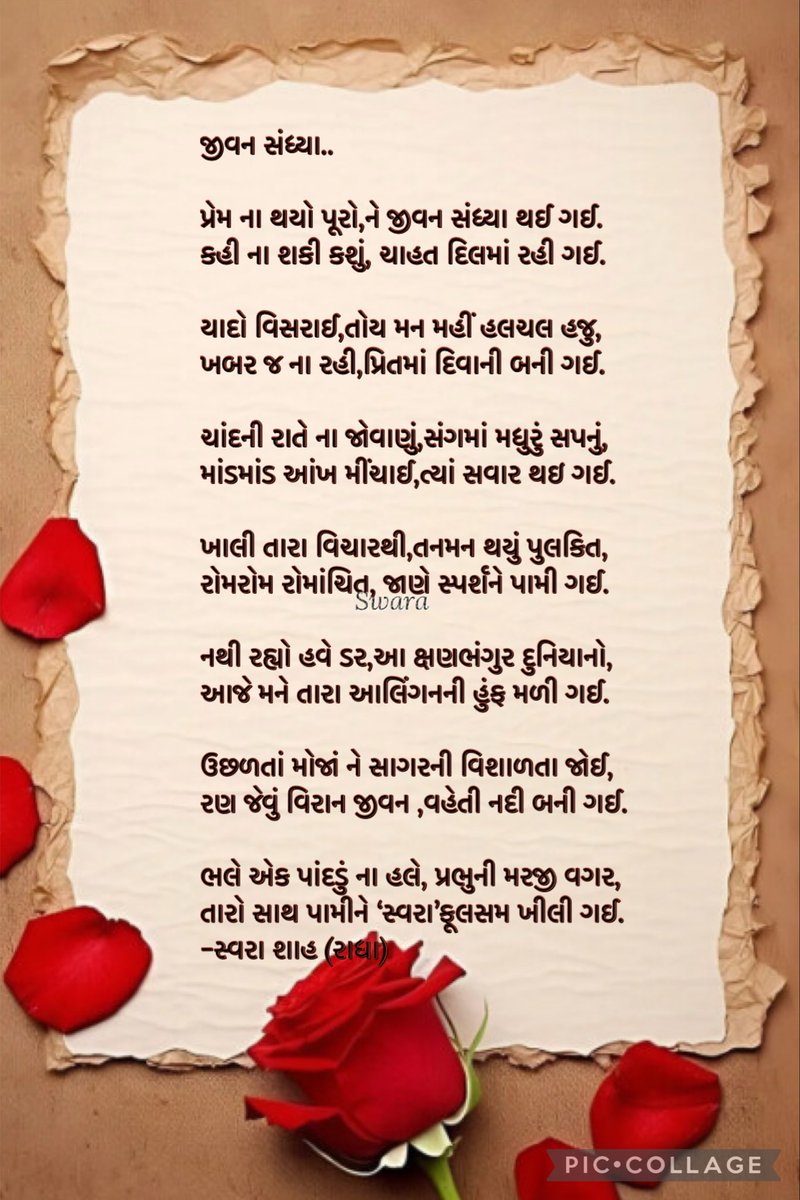 જીવન સંધ્યા..
પ્રેમ ના થયો પૂરો,ને જીવન સંધ્યા થઈ ગઈ.
કહી ના શકી કશું, ચાહત દિલમાં રહી ગઈ.
યાદો વિસરાઈ,તોય મન મહીં હલચલ હજુ,
ખબર જ ના રહી,પ્રિતમાં દિવાની બની ગઈ.
ચાંદની રાતે ના જોવાણું,સંગમાં મધુરું સપનું,
માંડમાંડ આંખ મીંચાઈ,ત્યાં સવાર થઇ ગઈ.
ખાલી તારા વિચારથી,તનમન થયું પુલકિત,
રોમરોમ રોમાંચિત, જાણે સ્પર્શને પામી ગઈ.
Swara
નથી રહ્યો હવે ડર,આ ક્ષણભંગુર દુનિયાનો,
આજે મને તારા આલિંગનની હુંફ મળી ગઈ.
ઉછળતાં મોજાં ને સાગરની વિશાળતા જોઈ,
રણ જેવું વિરાન જીવન ,વહેતી નદી બની ગઈ.
ભલે એક પાંદડું ના હલે, પ્રભુની મરજી વગર,
તારો સાથ પામીને ‘સ્વરા’ફૂલસમ ખીલી ગઈ.
-સ્વરા શાહ (રાધા)
PIC•COLLAGE